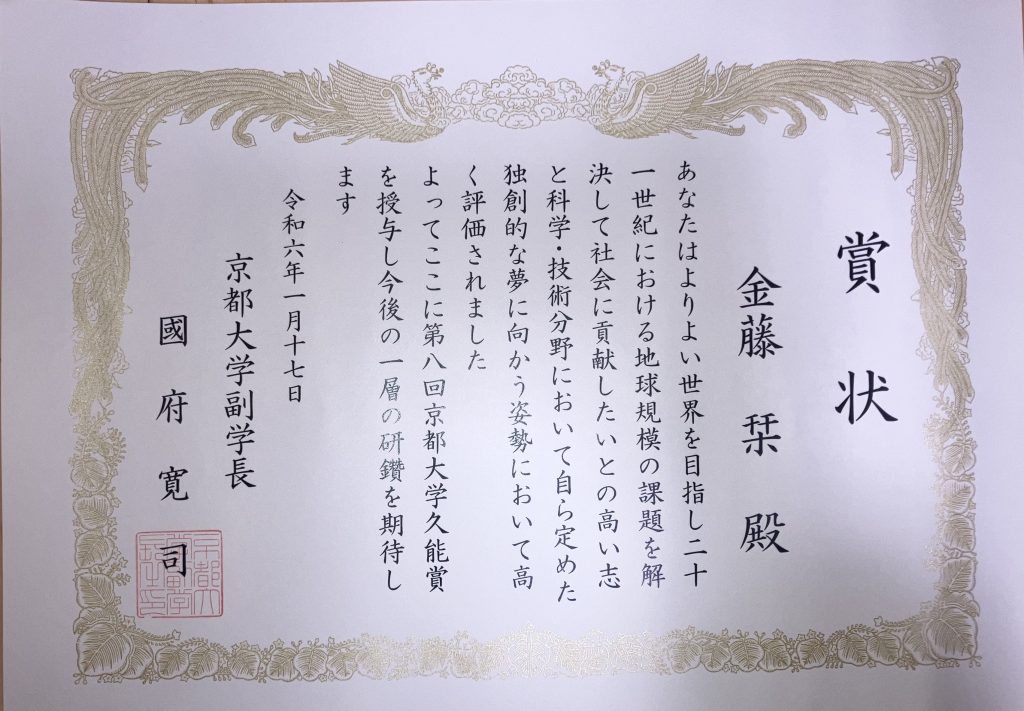 賞状
金藤栞殿
あなたはよりよい世界を目指し二十
一世紀における地球規模の課題を解
決して社会に貢献したいとの高い志
と科学・技術分野において自ら定めた
独創的な夢に向かう姿勢において高
く評価されました
よってここに第八回京都大学久能賞
を授与し今後の一層の研鑽を期待し
ます
令和六年一月十七日
京都大学副学長
國府寛司